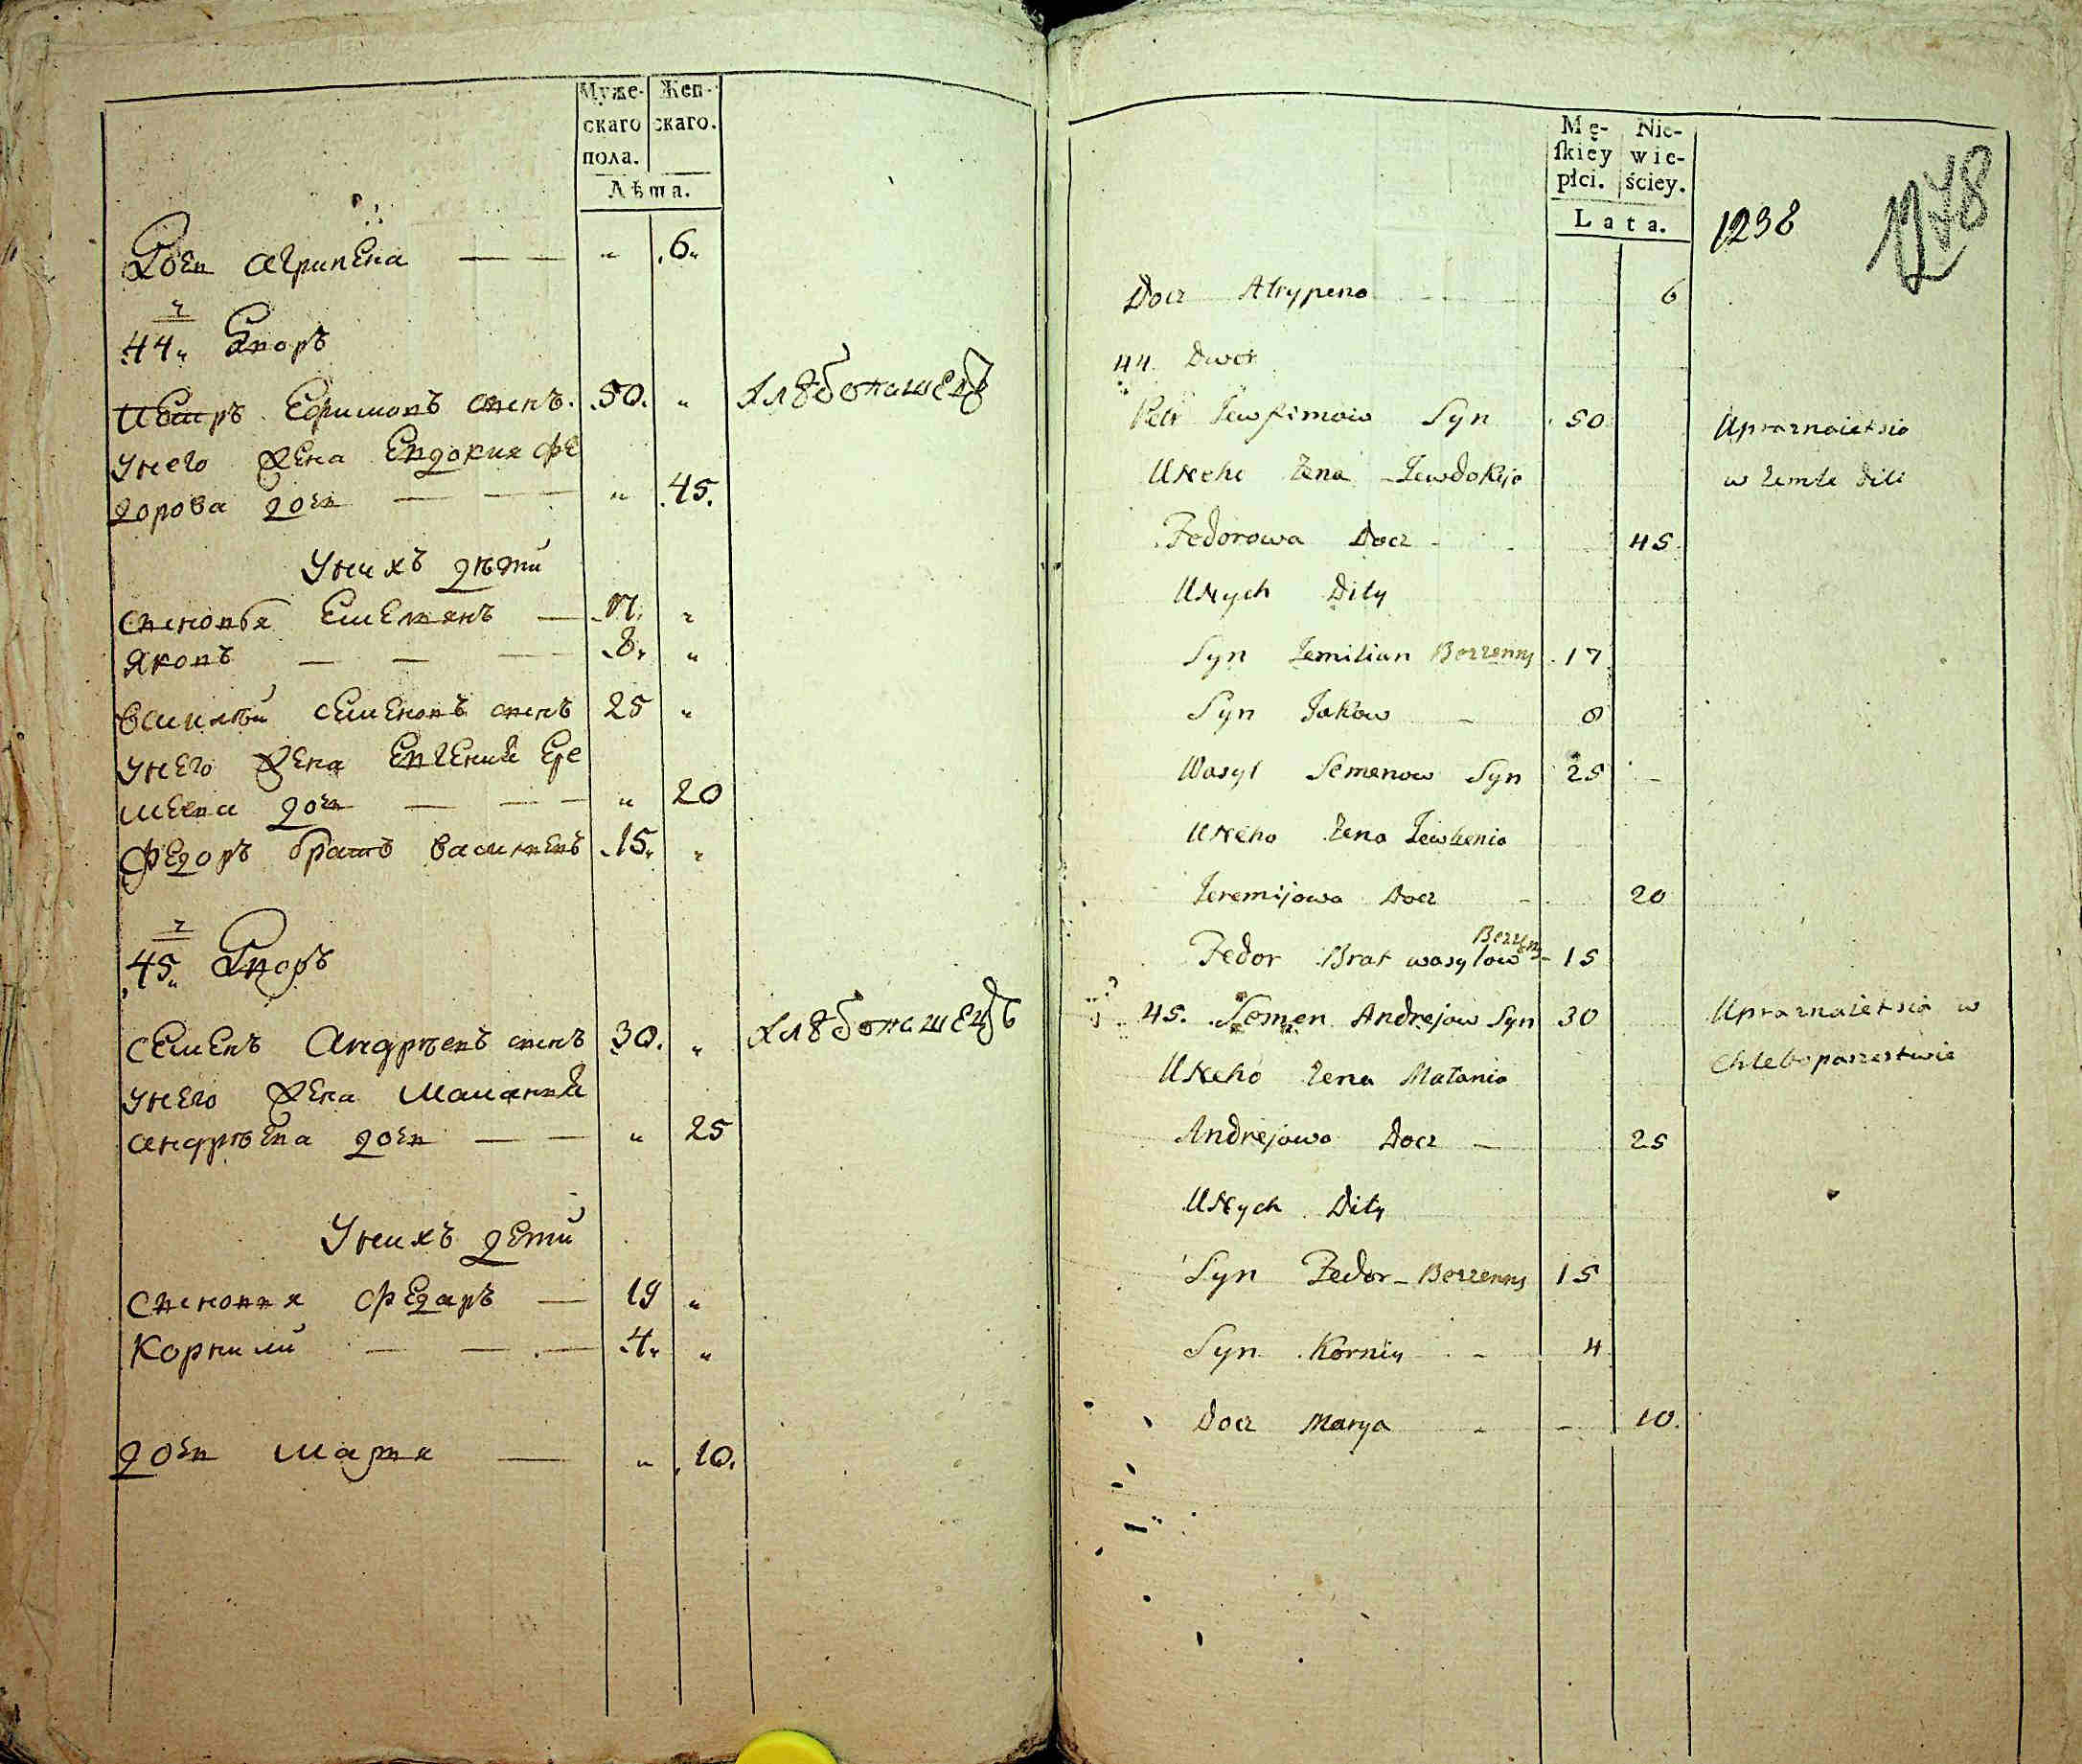 Муже-
скаго
пола.
Жен-
скаго.
Лѣта.
Дочь Агрипена — — " 6"
44" Дворъ
Петръ Ефимовъ сынъ 50. " хлѣбопашецъ
у него жена Евдокия Фе
дорова дочь — — " 45.
У нихъ дѣти
сыновья Емельянъ — 17. "
Яковъ — — — 8" "
Василѣй Семеновъ сынъ 25 "
у него жена Евгения Ере
меева дочь — — — " 20
Федоръ братъ Васильевъ 15" "
45" Дворъ
Семенъ Андрѣевъ сынъ 30. " хлѣбопашецъ
у него жена Маланья
Андрѣева дочь — — " 25
У нихъ дети
Сыновья Федаръ — 19 "
Корнили — — — 4" "
дочь Маря — " 10.
Mę-
ſkiey
płci.
Nie-
wie-
ściey.
Lata.
1238
1278
Docz Ahrypena 6
44. Dwor
Petr Jewfimow Syn 50 Upraznaietsia
UNeho Zena Jewdokija w Zemle dili
Fedorowa Docz 45
UNych Dity
Syn Jemilian Bezzenny 17
Syn Jakow — 8
Wasyl Semenow Syn 25 —
UNeho Zena Jewhenia
Jeremijowa Docz - 20
Bezzenny
Fedor Brat wasylow - 15
45. Semen Andrejow Syn 30 Upraznaietsia w
UNeho Zena Malania Chlebopaszestwie
Andrejowa Docz — 25
UNych Dity
Syn Fedor - Bezzenny 15
Syn Korniy - 4
Docz Marya - - 10.